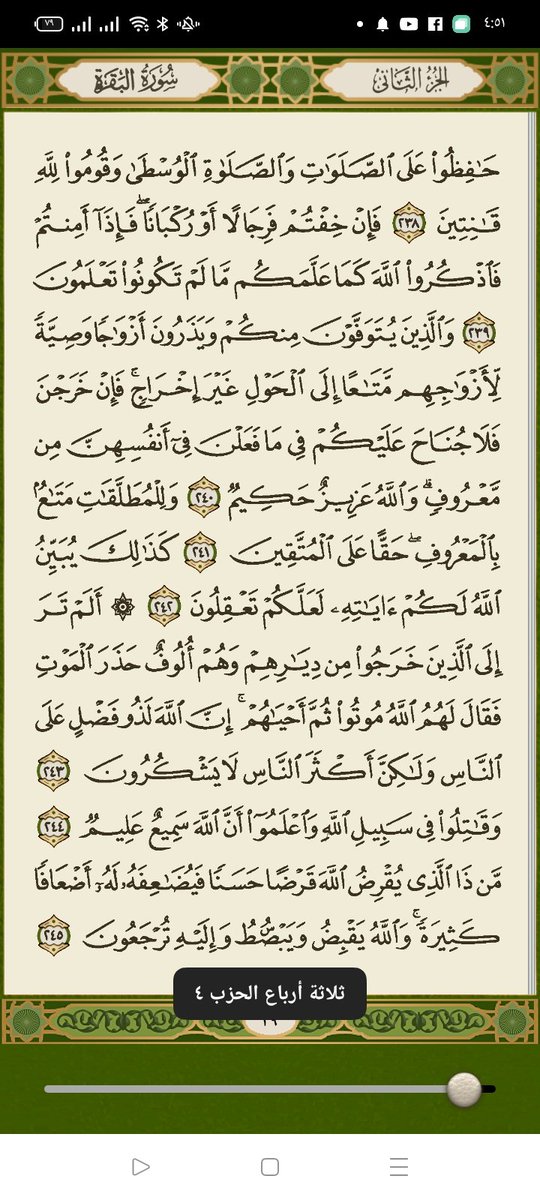 ٧٩
٤:٥١
الجزء الثاني
سورة البقرة
حَٰفِظُوا۟ عَلَى ٱلصَّلَوَٰتِ وَٱلصَّلَوٰةِ ٱلْوُسْطَىٰ وَقُومُوا۟ لِلَّهِ
قَٰنِتِينَ ٢٣٨ فَإِنْ خِفْتُمْ فَرِجَالًا أَوْ رُكْبَانًا ۖ فَإِذَآ أَمِنتُمْ
فَٱذْكُرُوا۟ ٱللَّهَ كَمَا عَلَّمَكُم مَّا لَمْ تَكُونُوا۟ تَعْلَمُونَ
٢٣٩ وَٱلَّذِينَ يُتَوَفَّوْنَ مِنكُمْ وَيَذَرُونَ أَزْوَٰجًا وَصِيَّةً
لِّأَزْوَٰجِهِم مَّتَٰعًا إِلَى ٱلْحَوْلِ غَيْرَ إِخْرَاجٍ ۚ فَإِنْ خَرَجْنَ
فَلَا جُنَاحَ عَلَيْكُمْ فِى مَا فَعَلْنَ فِىٓ أَنفُسِهِنَّ مِن
مَّعْرُوفٍ ۗ وَٱللَّهُ عَزِيزٌ حَكِيمٌ ٢٤٠ وَلِلْمُطَلَّقَٰتِ مَتَٰعٌۢ
بِٱلْمَعْرُوفِ ۖ حَقًّا عَلَى ٱلْمُتَّقِينَ ٢٤١ كَذَٰلِكَ يُبَيِّنُ
ٱللَّهُ لَكُمْ ءَايَٰتِهِۦ لَعَلَّكُمْ تَعْقِلُونَ ٢٤٢ ۞ أَلَمْ تَرَ
إِلَى ٱلَّذِينَ خَرَجُوا۟ مِن دِيَٰرِهِمْ وَهُمْ أُلُوفٌ حَذَرَ ٱلْمَوْتِ
فَقَالَ لَهُمُ ٱللَّهُ مُوتُوا۟ ثُمَّ أَحْيَٰهُمْ ۚ إِنَّ ٱللَّهَ لَذُو فَضْلٍ عَلَى
ٱلنَّاسِ وَلَٰكِنَّ أَكْثَرَ ٱلنَّاسِ لَا يَشْكُرُونَ ٢٤٣
وَقَٰتِلُوا۟ فِى سَبِيلِ ٱللَّهِ وَٱعْلَمُوٓا۟ أَنَّ ٱللَّهَ سَمِيعٌ عَلِيمٌ ٢٤٤
مَّن ذَا ٱلَّذِى يُقْرِضُ ٱللَّهَ قَرْضًا حَسَنًا فَيُضَٰعِفَهُۥ لَهُۥٓ أَضْعَافًا
كَثِيرَةً ۚ وَٱللَّهُ يَقْبِضُ وَيَبْصُۜطُ وَإِلَيْهِ تُرْجَعُونَ ٢٤٥
ثلاثة أرباع الحزب ٤